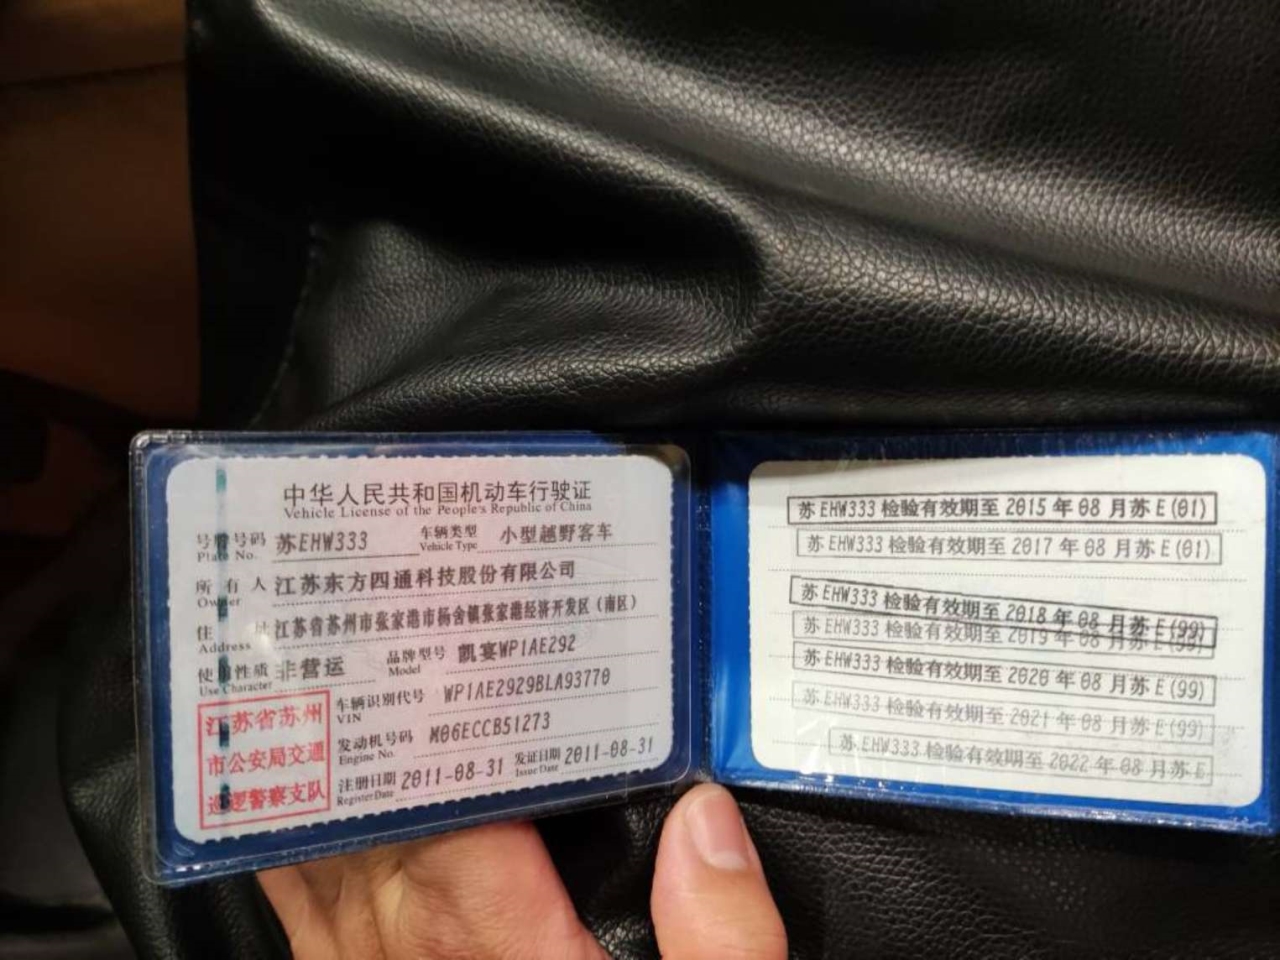 中华人民共和国机动车行驶证
Vehicle License of the People's Republic of China
号牌号码 苏EHW333 车辆类型 小型越野客车
Plate No. Vehicle Type
所有人 江苏东方四通科技股份有限公司
Owner
住址 江苏省苏州市张家港市杨舍镇张家港经济开发区(南区)
Address
使用性质 非营运 品牌型号 凯宴WP1AE292
Use Character Model
车辆识别代号 WP1AE2929BLA93770
VIN
发动机号码 M06ECCB51273
Engine No.
注册日期 2011-08-31 发证日期 2011-08-31
Register Date Issue Date
江苏省苏州
市公安局交通
巡逻警察支队
苏EHW333 检验有效期至 2015 年 08 月苏 E(01)
苏 EHW333 检验有效期至 2017 年 08 月苏 E(01)
苏 EHW333 检验有效期至 2018 年 08 月苏 E(99)
苏 EHW333 检验有效期至 2019 年 08 月苏 E(99)
苏 EHW333 检验有效期至 2020 年 08 月苏 E(99)
苏 EHW333 检验有效期至 2021 年 08 月苏 E(99)
苏 EHW333 检验有效期至 2022 年 08 月苏 E